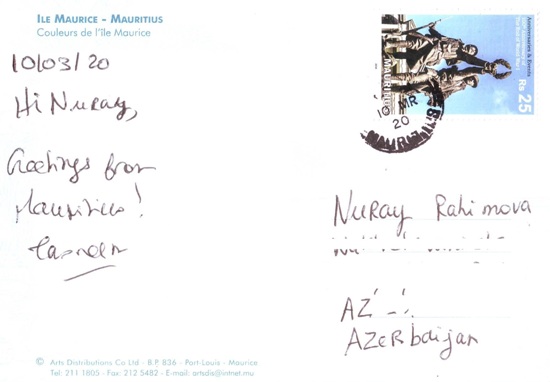 ILE MAURICE - MAURITIUS
Couleurs de l'île Maurice
10/03/20
Hi Nuray,
Greetings from
Mauritius!
Anniversaries & Events
Rs 25
MAURITIUS
10 MR
20
NURAY Rahimova
AZ
AZERbaijan
© Arts Distributions Co Ltd - B.P. 836 - Port-Louis - Maurice
Tel: 211 1805 - Fax: 212 5482 - E-mail: artsdis@intnet.mu